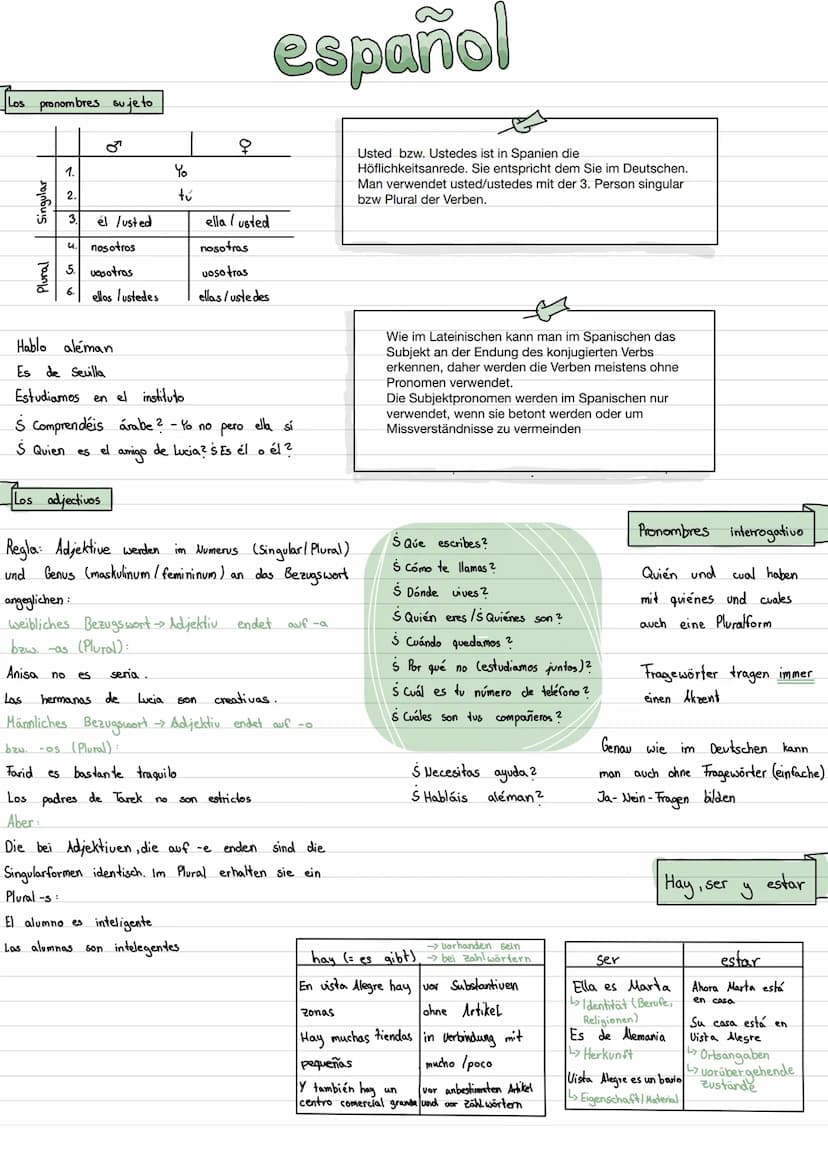 español
Los pronombres sujeto
♂ ♀
Singular
1. Yo
2. tú
3. él /usted ella / usted
Plural
4. nosotros nosotras
5. vosotros vosotras
6. ellos /ustedes ellas/ustedes
Usted bzw. Ustedes ist in Spanien die
Höflichkeitsanrede. Sie entspricht dem Sie im Deutschen.
Man verwendet usted/ustedes mit der 3. Person singular
bzw Plural der Verben.
Wie im Lateinischen kann man im Spanischen das
Subjekt an der Endung des konjugierten Verbs
erkennen, daher werden die Verben meistens ohne
Pronomen verwendet.
Die Subjektpronomen werden im Spanischen nur
verwendet, wenn sie betont werden oder um
Missverständnisse zu vermeinden
Hablo aléman
Es de Sevilla
Estudiamos en el instituto
¿ Comprendéis árabe? - Yo no pero ella sí
¿ Quien es el amigo de Lucia? ¿Es él o él?
Los adjectivos
Regla: Adjektive werden im Numerus (Singular/Plural)
und Genus (maskulinum / femininum) an das Bezugswort
angeglichen:
weibliches Bezugswort → Adjektiv endet auf -a
bzw. -as (Plural):
Anisa no es seria.
Las hermanas de Lucia son creativas.
Männliches Bezugswort → Adjektiv endet auf -o
bzw. -os (Plural):
Farid es bastante traquilo
Los padres de Tarek no son estrictos
Aber:
Die bei Adjektiven, die auf -e enden sind die
Singularformen identisch. Im Plural erhalten sie ein
Plural -s:
El alumno es inteligente
Las alumnas son intelegentes
¿ Qúe escribes?
¿ Cómo te llamas?
¿ Dónde vives?
¿ Quién eres /¿ Quiénes son?
¿ Cuándo quedamos?
¿ Por qué no (estudiamos juntos)?
¿ Cuál es tu número de teléfono?
¿ Cuáles son tus compañeros?
¿ Necesitas ayuda?
¿ Habláis aléman?
Pronombres interrogativo
Quién und cual haben
mit quiénes und cuales
auch eine Pluralform
Fragewörter tragen immer
einen Akzent
Genau wie im Deutschen kann
man auch ohne Fragewörter (einfache)
Ja-Nein-Fragen bilden
Hay, ser y estar
hay (= es gibt) → vorhanden sein
→ bei Zahlwörtern
En vista Alegre hay vor Substantiven
zonas ohne Artikel
Hay muchas tiendas in Verbindung mit
pequeñas mucho /poco
Y también hay un vor unbestimmten Artikel
centro comercial grande und vor Zahlwörtern
ser estar
Ella es Marta
↳ Identität (Berufe,
Religionen)
Es de Alemania
↳ Herkunft
Vista Alegre es un bario
↳ Eigenschaft/Material
Ahora Marta está
en casa
Su casa está en
Vista Alegre
↳ Ortsangaben
↳ vorübergehende
Zustände